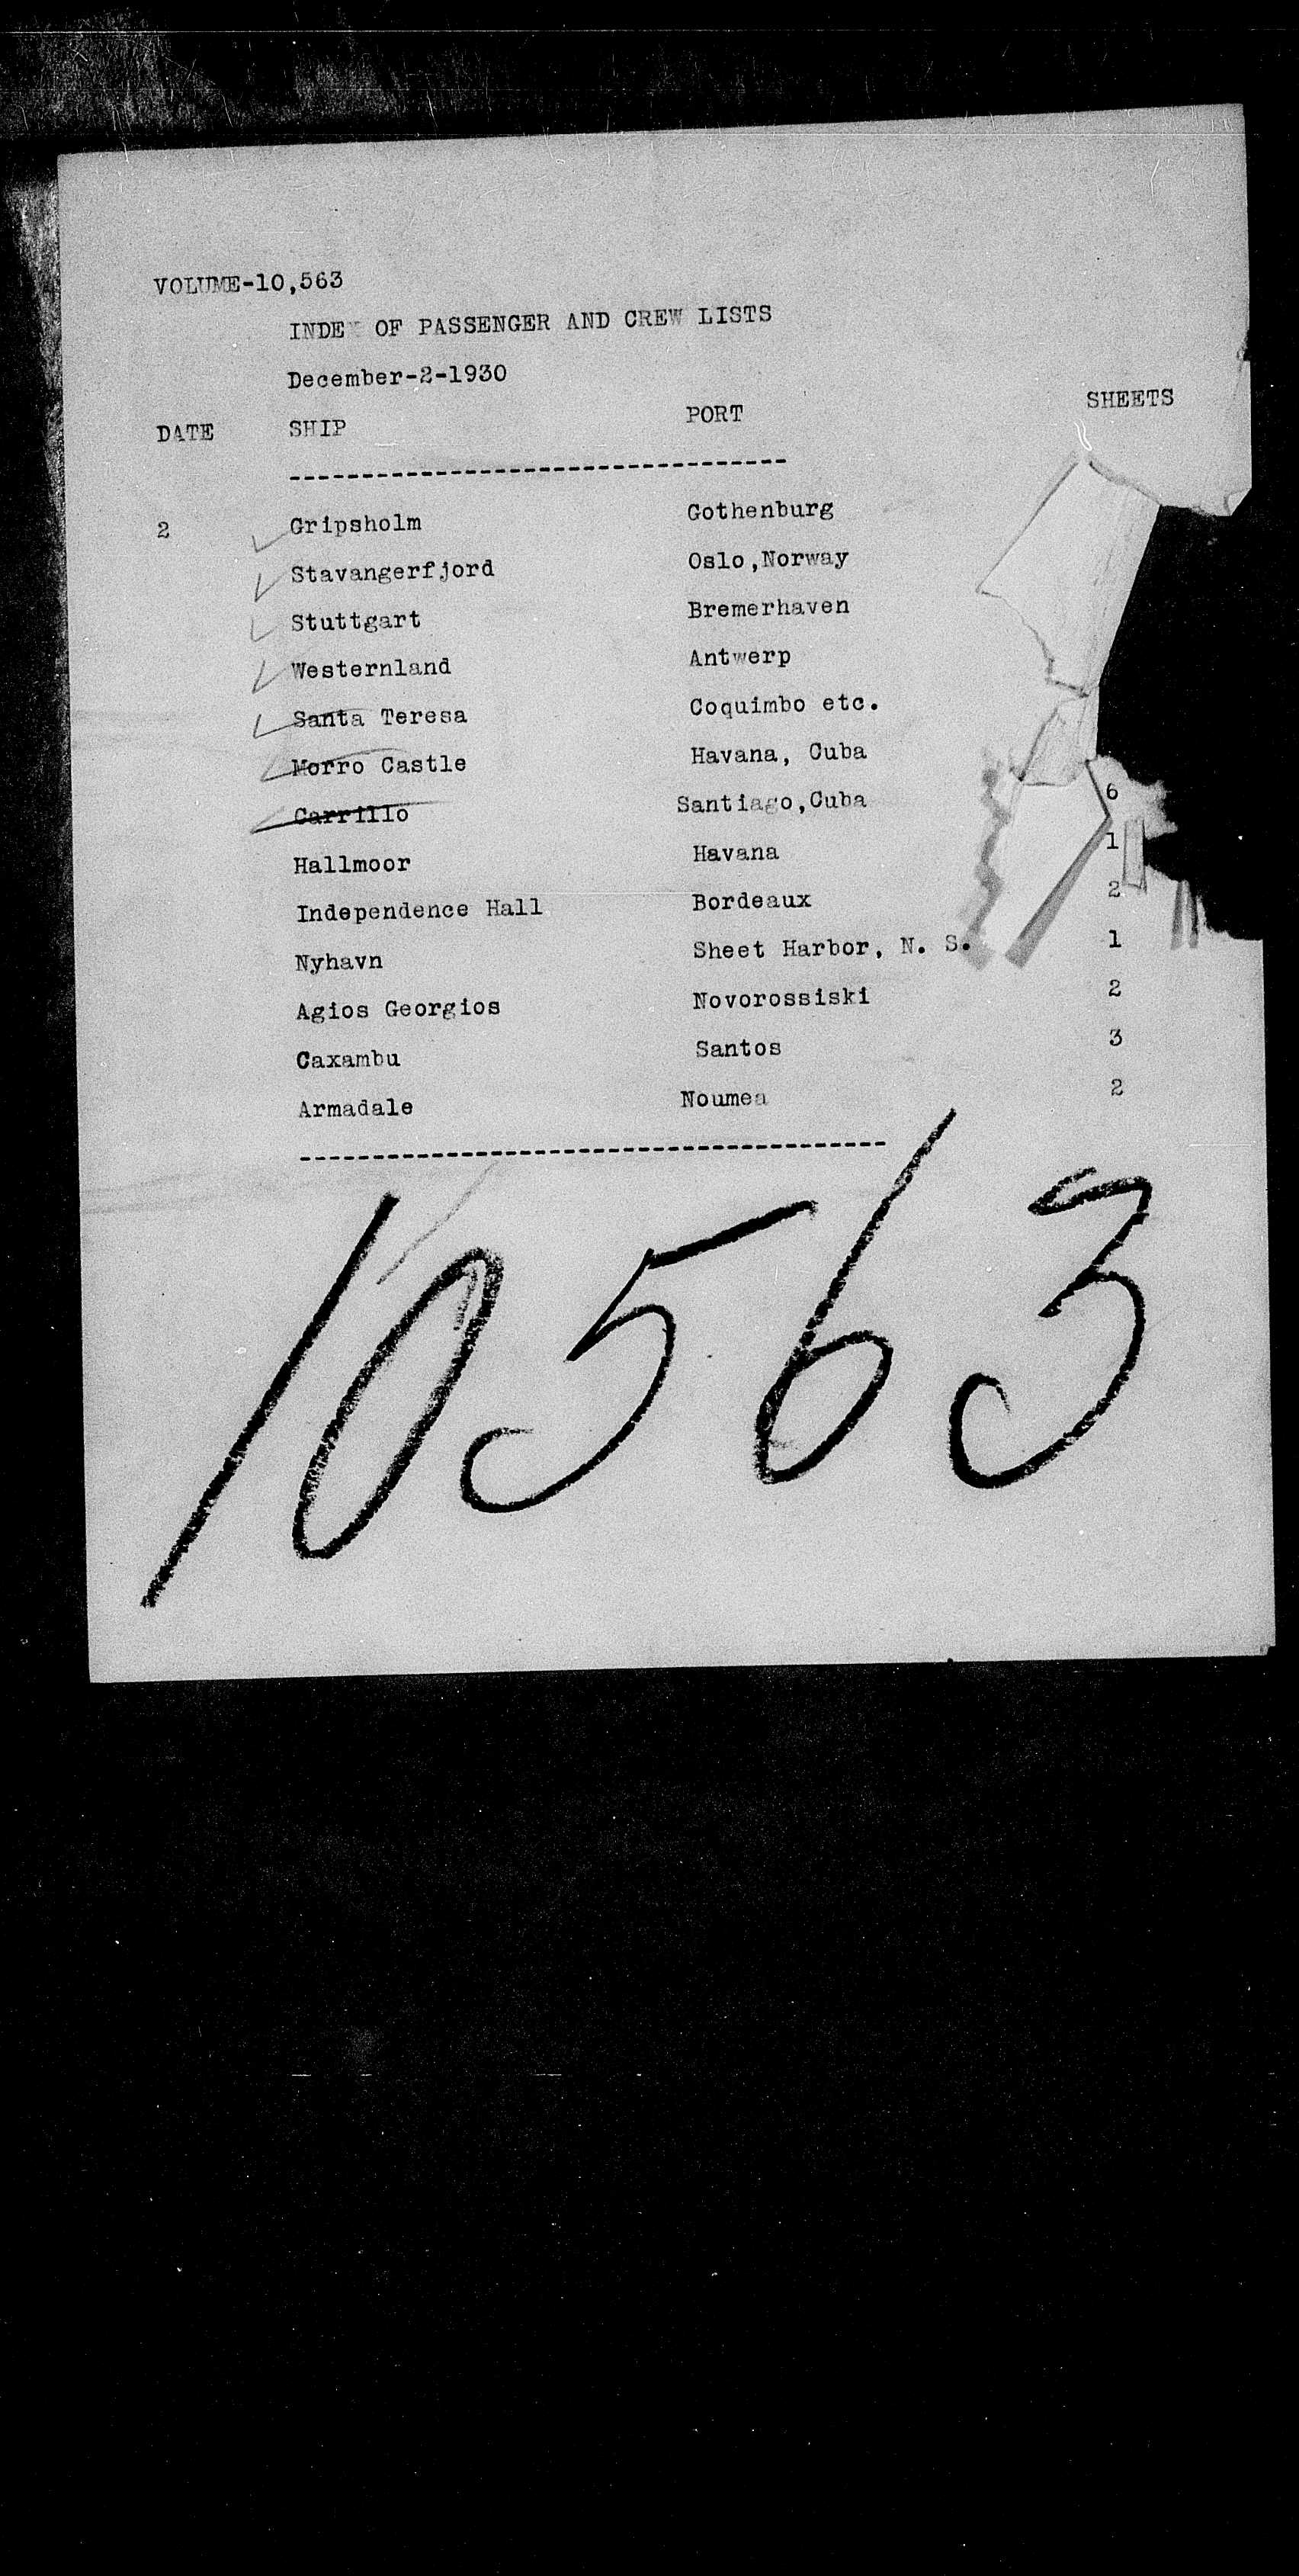 VOLUME-10,563
INDEX OF PASSENGER AND CREW LISTS
December-2-1930
DATE SHIP PORT SHEETS
2 Gripsholm Gothenburg
Stavangerfjord Oslo,Norway
Stuttgart Bremerhaven
Westernland Antwerp
Santa Teresa Coquimbo etc.
Morro Castle Havana, Cuba
Carrillo Santiago,Cuba 6
Hallmoor Havana 1
Independence Hall Bordeaux 2
Nyhavn Sheet Harbor, N. S. 1
Agios Georgios Novorossiski 2
Caxambu Santos 3
Armadale Noumea 2
10563